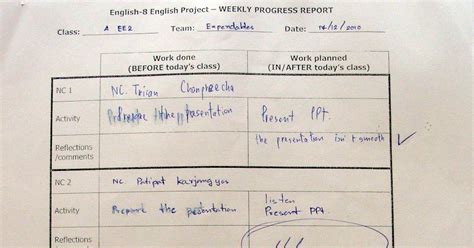 English-8 English Project – WEEKLY PROGRESS REPORT
Class: A EE2 Team: Expendables Date: 14/12/2010
Work done Work planned
(BEFORE today's class) (IN/AFTER today's class)
NC 1 NC. Trison Chanpreecha
Activity Prepare the presentation Present PPT.
Reflections the presentation isn't smooth
/comments
NC 2 NC. Patipat
listen
Activity Prepare the presentation Present PPT.
Reflections